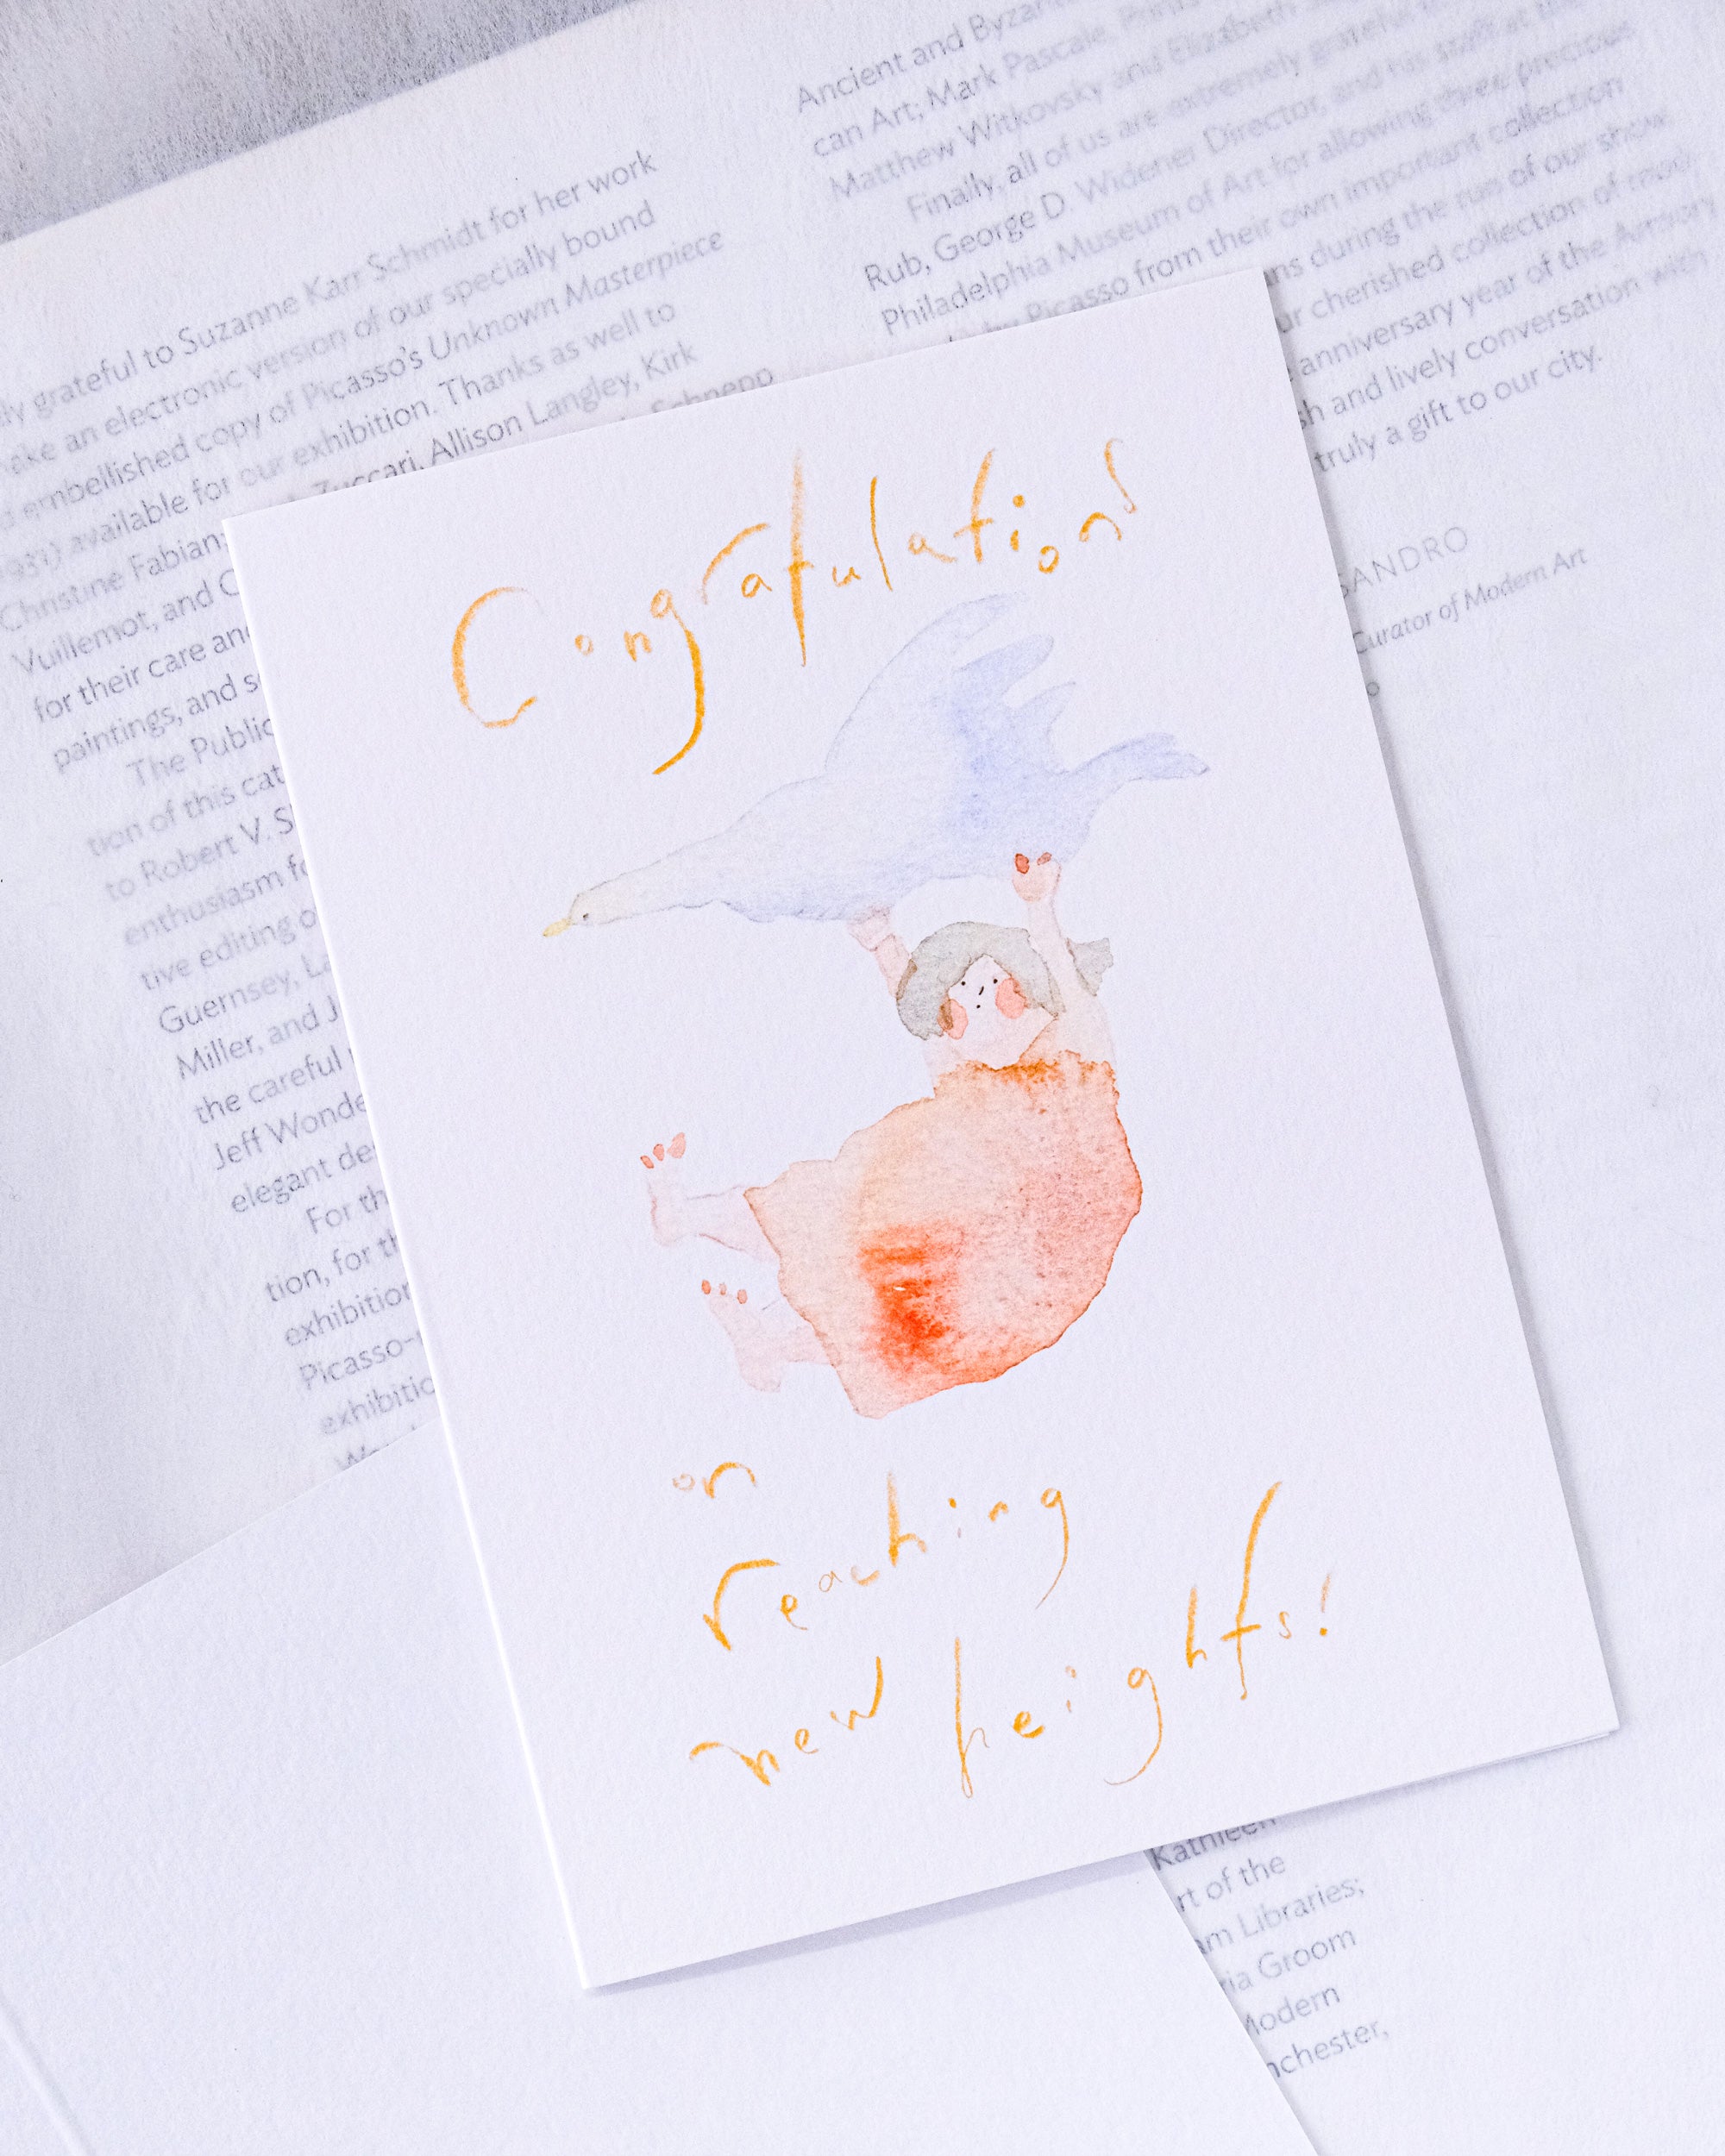 Congratulations
on
reaching
new heights!
ly grateful to Suzanne Karr Schmidt for her work
ake an electronic version of our specially bound
d embellished copy of Picasso's Unknown Masterpiece
931) available for our exhibition. Thanks as well to
Zuccari, Allison Langley, Kirk
Schnepp
Christine Fabian
Vuillemot, and C
for their care and
paintings, and s
The Public
tion of this cat
to Robert V. S
enthusiasm fo
tive editing o
Guernsey, La
Miller, and J
the careful
Jeff Wonde
elegant de
For th
tion, for th
exhibition
Picasso-
exhibitio
Ancient and Byzan
can Art; Mark Pascale, Prints
Matthew Witkovsky and Elizabeth
Finally, all of us are extremely grateful
Rub, George D. Widener Director, and his staff at th
Philadelphia Museum of Art for allowing three precious
by Picasso from their own important collection
ns during the run of our show
ur cherished collection of mod
anniversary year of the Armory
sh and lively conversation with
truly a gift to our city.
SANDRO
Curator of Modern Art
o
Kathleen
rt of the
am Libraries;
ria Groom
Modern
nchester,